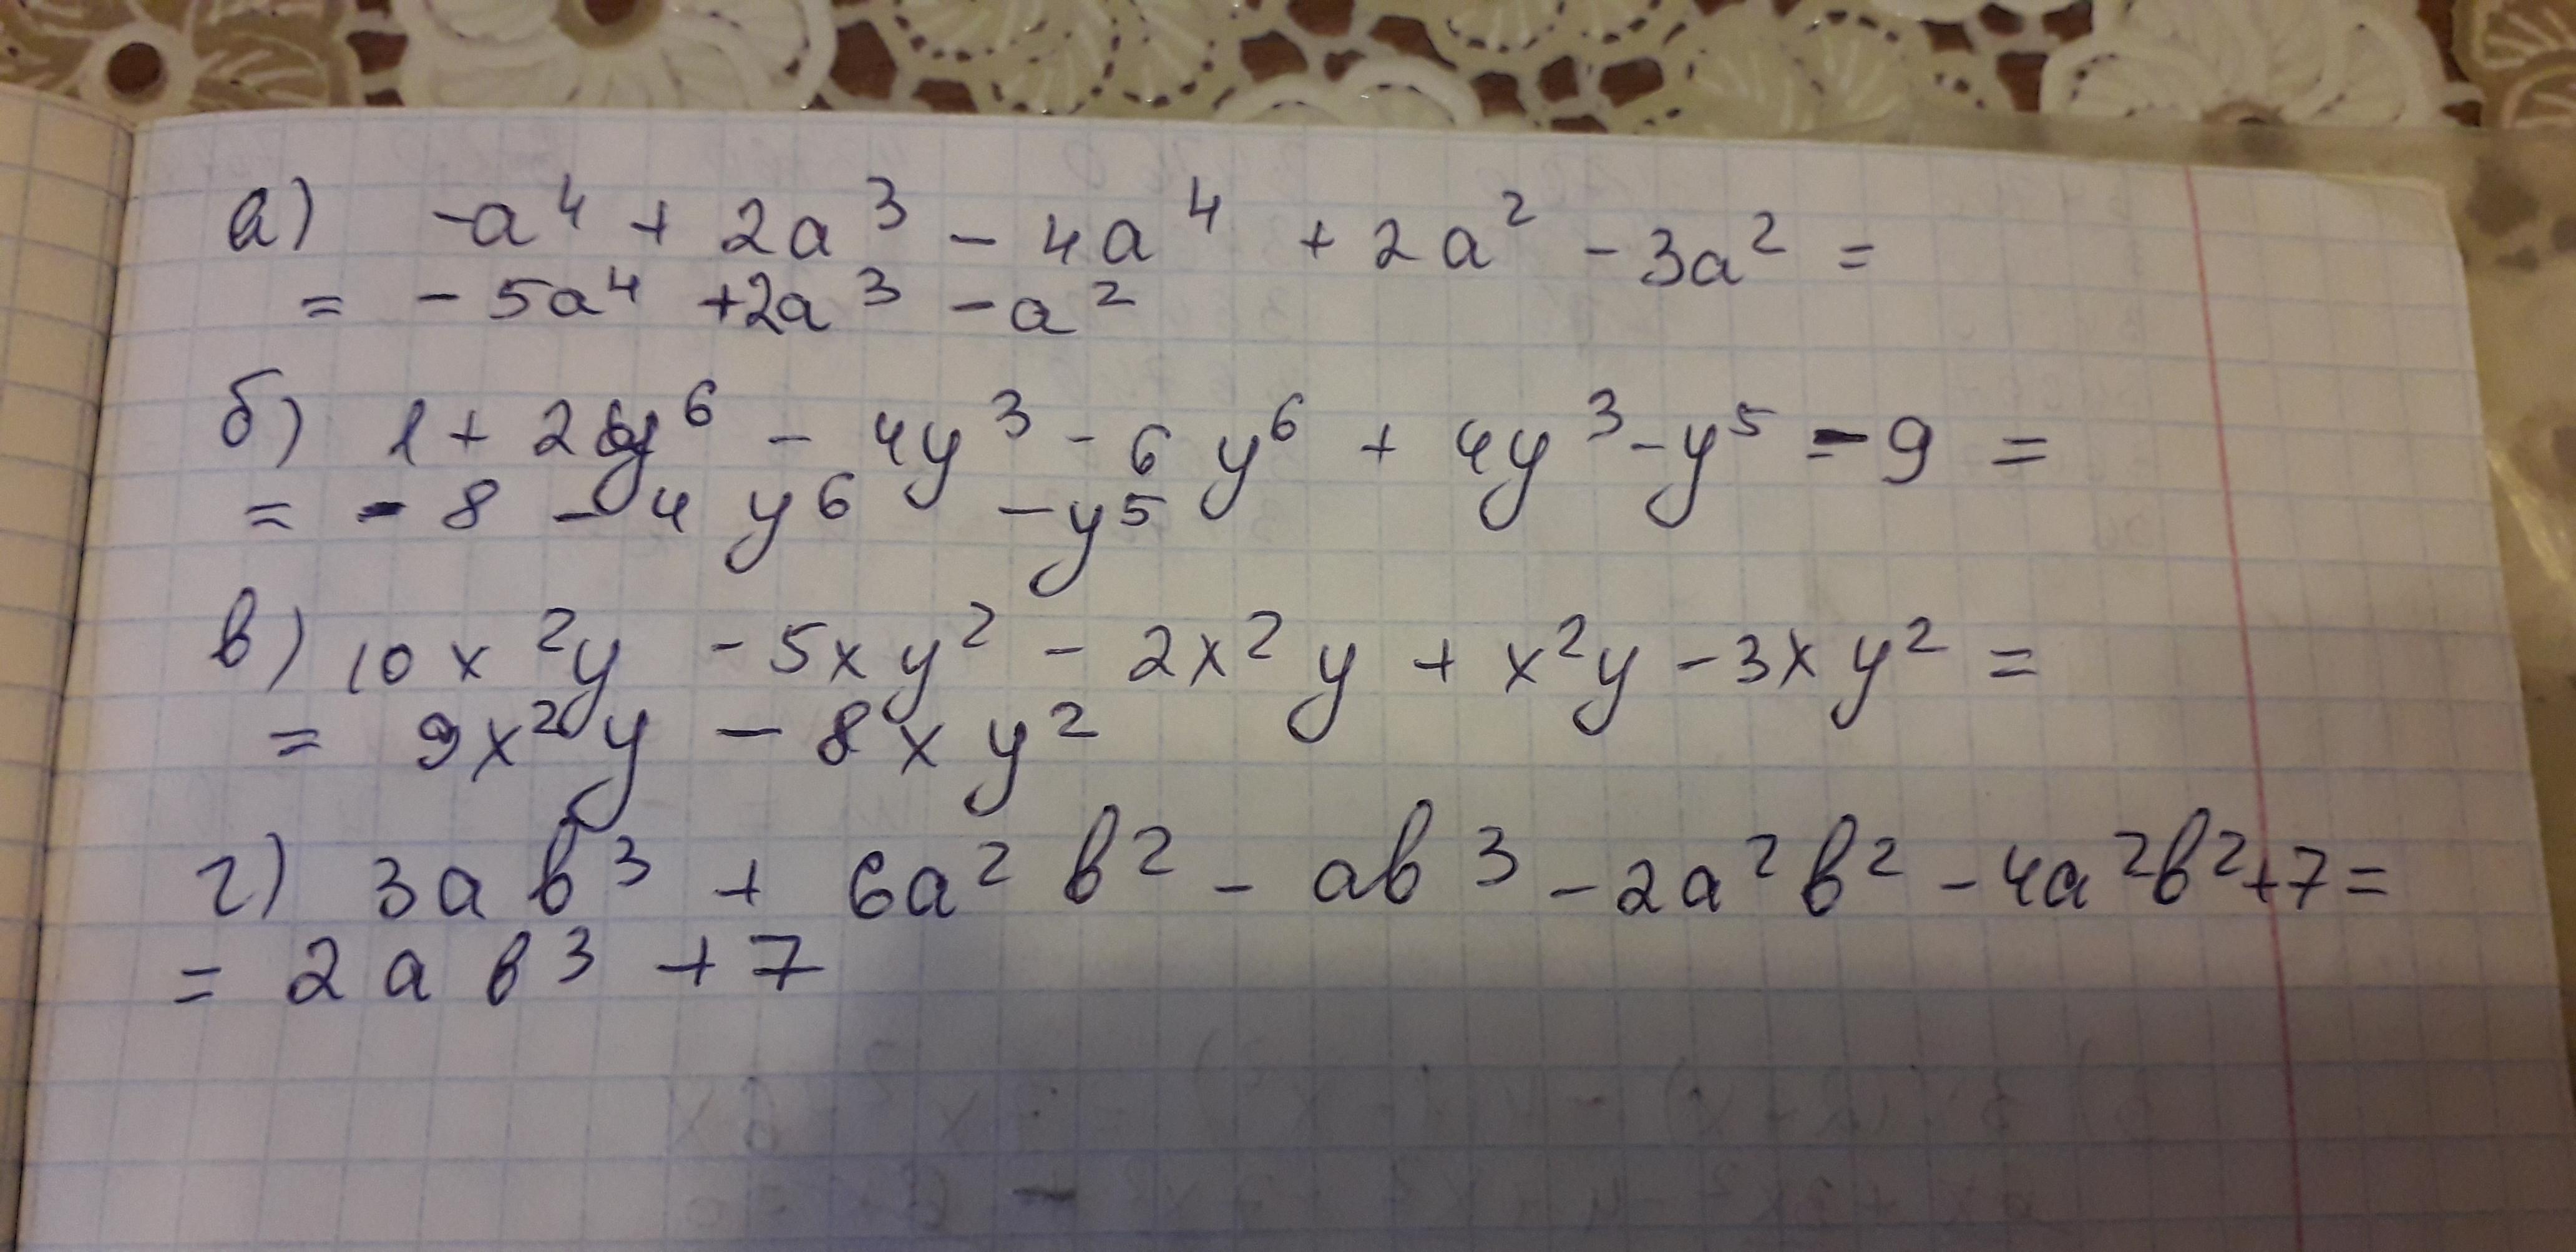 а) -a⁴ + 2a³ - 4a⁴ + 2a² - 3a² =
= - 5a⁴ +2a³ - a²
б) 1 + 2y⁶ - 4y³ - 6y⁶ + 4y³ - y⁵ - 9 =
= - 8 - 4y⁶ - y⁵
в) 10x²y - 5xy² - 2x²y + x²y - 3xy² =
= 9x²y - 8xy²
г) 3ab³ + 6a²b² - ab³ - 2a²b² - 4a²b² + 7 =
= 2ab³ + 7